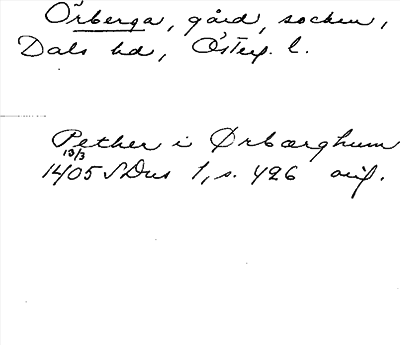 Örberga, gård, socken,
Dals hd, Östergl. l.
Pether i Ørbærghum
13/3
1405 SDns 1, s. 426 orig.